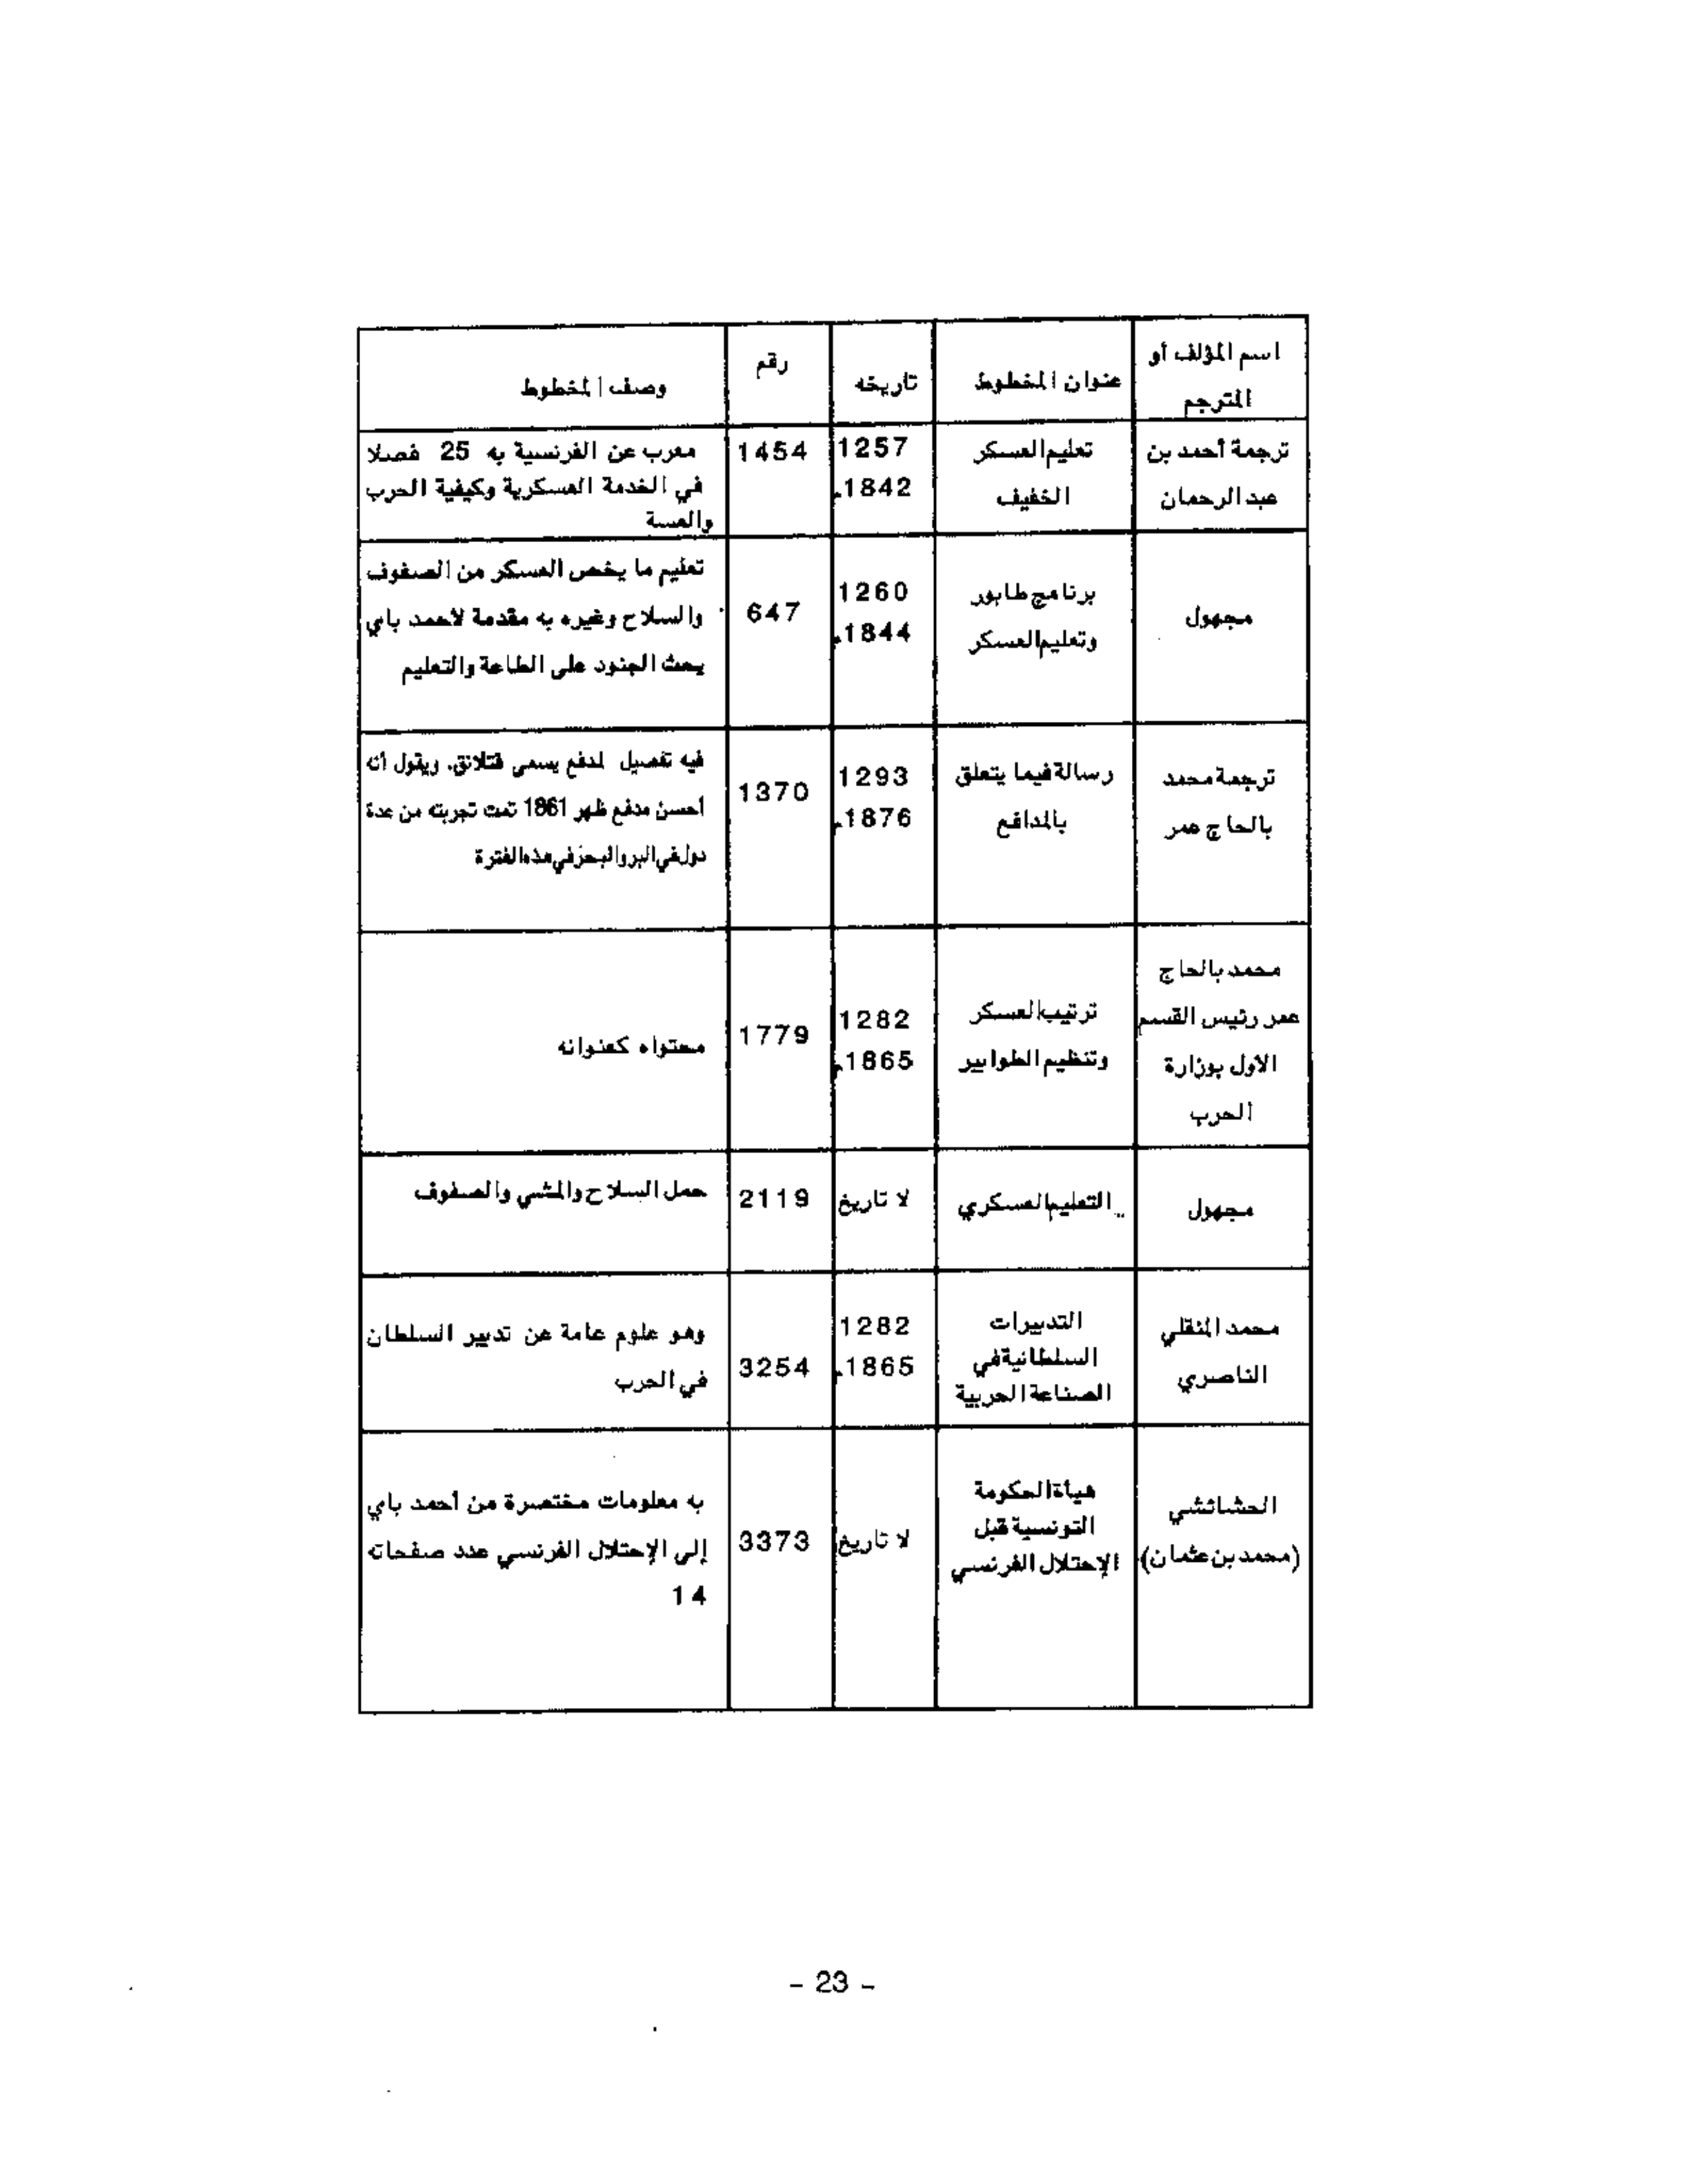 اسم المؤلف أو
المترجم
عنوان المخطوط
تاريخه
رقم
وصف المخطوط
ترجمة أحمد بن
عبد الرحمان
تعليم العسكر
الخفيف
1257
1842م
1454
معرب عن الفرنسية به 25 فصلا
في الخدمة العسكرية وكيفية الحرب
والعسة
مجهول
برنامج طابور
وتعليم العسكر
1260
1844م
647
تعليم ما يخص العسكر من الصفوف
والسلاح وغيره به مقدمة لأحمد باي
يحث الجنود على الطاعة والتعليم
ترجمة محمد
بالحاج عمر
رسالة فيما يتعلق
بالمدافع
1293
1876م
1370
فيه تفصيل لمدفع يسمى قتلانق. ويقول أنه
أحسن مدفع ظهر 1861 تمت تجربته من عدة
دول في البر والبحر في هذه الفترة
محمد بالحاج
عمر رئيس القسم
الاول بوزارة
الحرب
ترتيب العسكر
وتنظيم الطوابير
1282
1865م
1779
محتواه كعنوانه
مجهول
التعليم العسكري
لا تاريخ
2119
حمل السلاح والمشي والصفوف
محمد المنقلي
الناصري
التدبيرات
السلطانية في
الصناعة الحربية
1282
1865م
3254
وهو علوم عامة عن تدبير السلطان
في الحرب
الحشائشي
(محمد بن عثمان)
هيأة الحكومة
التونسية قبل
الإحتلال الفرنسي
لا تاريخ
3373
به معلومات مختصرة من أحمد باي
إلى الإحتلال الفرنسي عدد صفحاته
14
- 23 -